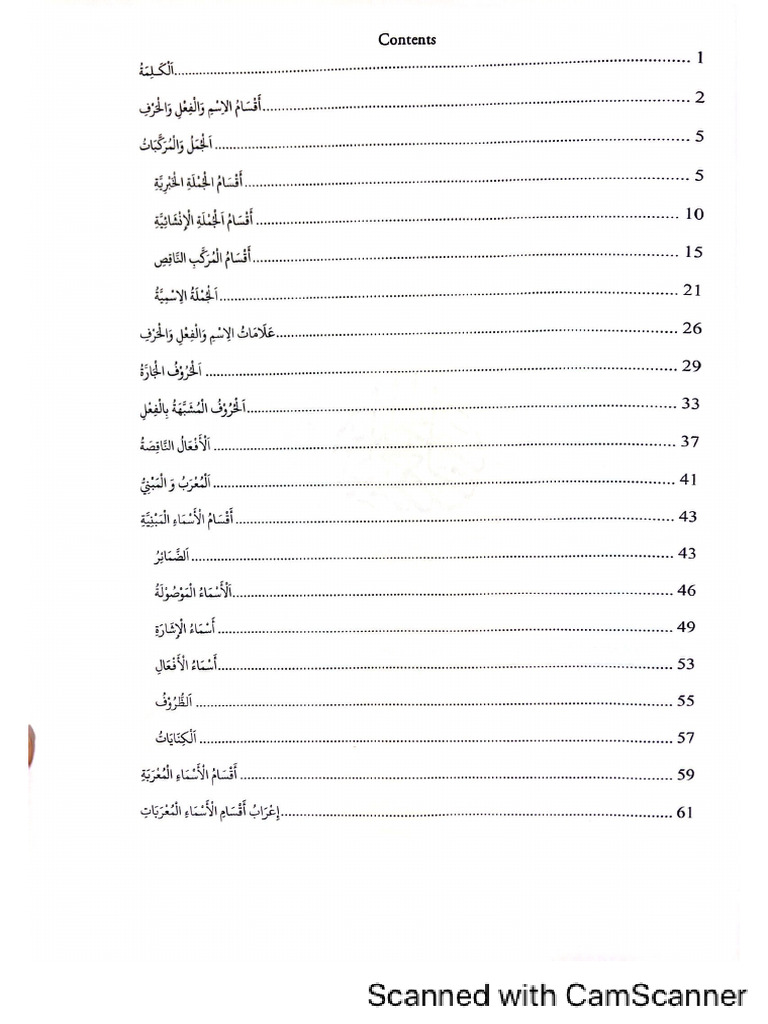 Contents
اَلْكَلِمَةُ........................................................ 1
أَقْسَامُ الاِسْمِ وَالْفِعْلِ وَالْحَرْفِ........................................................ 2
اَلْجُمَلُ وَالْمُرَكَّبَاتُ ........................................................ 5
أَقْسَامُ الْجُمْلَةِ الْخَبْرِيَّةِ........................................................ 5
أَقْسَامُ اَلْجُمْلَةِ الْإِنْشَائِيَّةِ ........................................................ 10
أَقْسَامُ الْمُرَكَّبِ النَّاقِصِ........................................................ 15
اَلْجُمْلَةُ الاِسْمِيَّةُ........................................................ 21
عَلَامَاتُ الاِسْمِ وَالْفِعْلِ وَالْحَرْفِ........................................................ 26
اَلْحُرُوْفُ الْجَارَّةُ ........................................................ 29
اَلْحُرُوْفُ الْمُشَبَّهَةُ بِالْفِعْلِ........................................................ 33
اَلْأَفْعَالُ النَّاقِصَةُ ........................................................ 37
اَلْمُعْرَبُ وَ الْمَبْنِيُّ ........................................................ 41
أَقْسَامُ الْأَسْمَاءِ الْمَبْنِيَّةِ........................................................ 43
اَلضَّمَائِرُ ........................................................ 43
اَلْأَسْمَاءُ الْمَوْصُوْلَةُ........................................................ 46
أَسْمَاءُ الْإِشَارَةِ ........................................................ 49
أَسْمَاءُ الْأَفْعَالِ........................................................ 53
اَلظُّرُوْفُ ........................................................ 55
اَلْكِنَايَاتُ ........................................................ 57
أَقْسَامُ الْأَسْمَاءِ الْمُعْرَبَةِ ........................................................ 59
إِعْرَابُ أَقْسَامِ الْأَسْمَاءِ الْمُعْرَبَاتِ........................................................ 61
Scanned with CamScanner